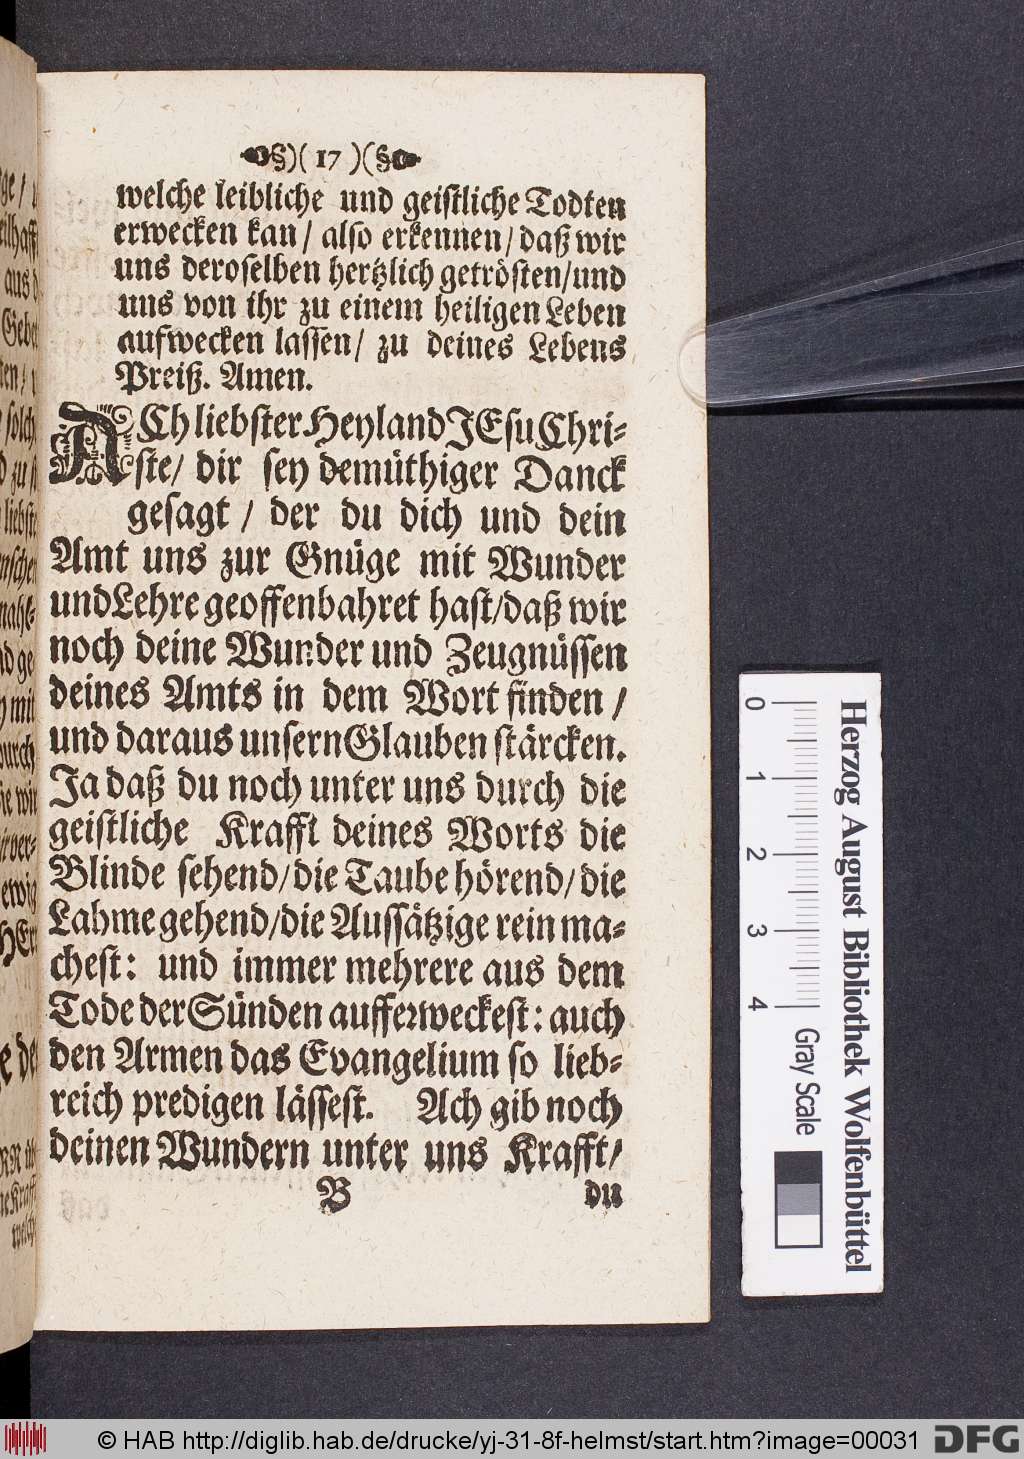 §)( 17 )(§
welche leibliche und geistliche Todten
erwecken kan/ also erkennen/ daß wir
uns deroselben hertzlich getrösten/und
uns von ihr zu einem heiligen Leben
aufwecken lassen/ zu deines Lebens
Preiß. Amen.
ACh liebster Heyland JEsu Chri-
ste/ dir sey demüthiger Danck
gesagt / der du dich und dein
Amt uns zur Gnüge mit Wunder
und Lehre geoffenbahret hast/daß wir
noch deine Wunder und Zeugnüssen
deines Amts in dem Wort finden /
und daraus unsern Glauben stärcken.
Ja daß du noch unter uns durch die
geistliche Krafft deines Worts die
Blinde sehend/die Taube hörend/die
Lahme gehend/die Aussätzige rein ma-
chest: und immer mehrere aus dem
Tode der Sünden aufferweckest: auch
den Armen das Evangelium so lieb-
reich predigen lässest. Ach gib noch
deinen Wundern unter uns Krafft/
B du
Herzog August Bibliothek Wolfenbüttel
0 1 2 3 4 Gray Scale
© HAB http://diglib.hab.de/drucke/yj-31-8f-helmst/start.htm?image=00031 DFG